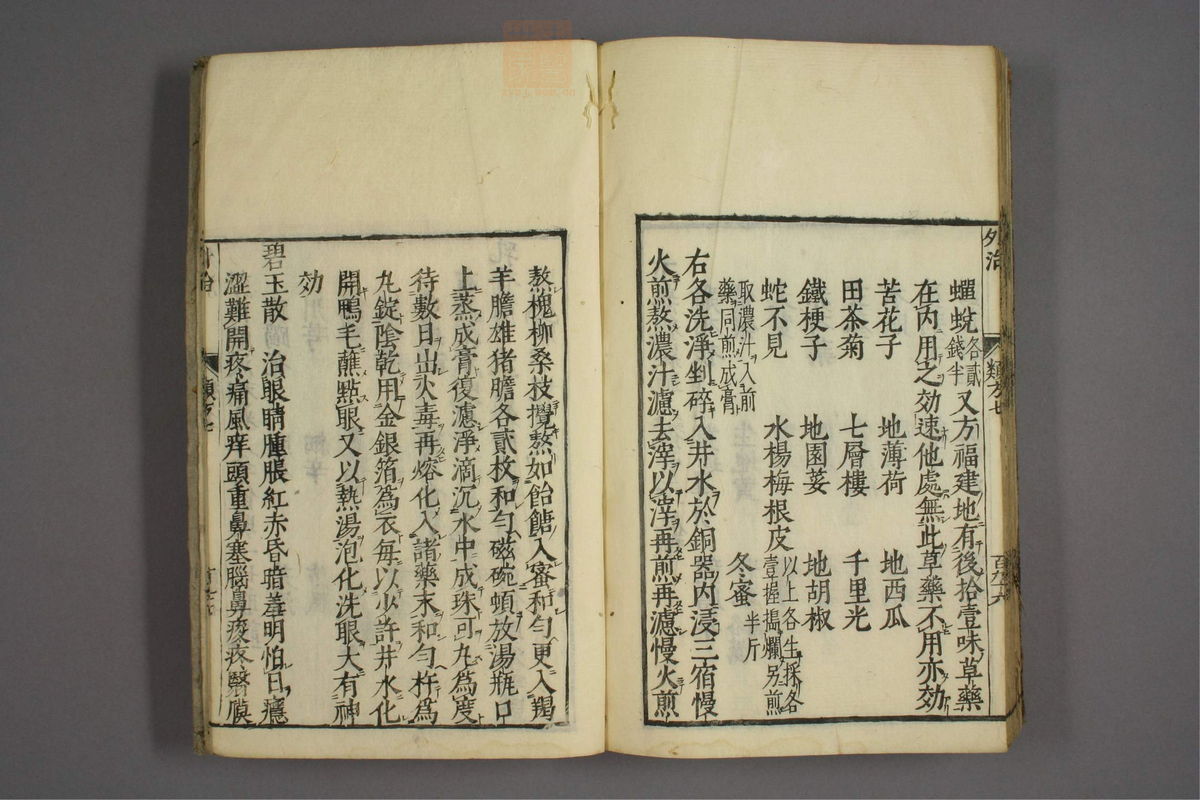 外治
類方七
蟬蛻各貳錢半又方福建地有後拾壹味草藥
在內用之效速他處無此草藥不用亦効
苦花子 地薄荷 地西瓜
田茶菊 七層樓 千里光
鐵梗子 地園荽 地胡椒
蛇不見 水楊梅根皮以上各生採各壹握搗爛另煎
取濃汁入前藥同煎成膏 冬蜜半斤
右各洗淨剉碎入井水於銅器內浸三宿慢
火煎熬濃汁濾去滓以滓再煎再濾慢火煎
熬槐柳桑枝攪熬如飴餹入蜜和勻更入羯
羊膽雄猪膽各貳枚和勻磁碗頓放湯瓶口
上蒸成膏復濾淨滴沉水中成珠可丸爲度
待數日出火毒再熔化入諸藥末和勻杵爲
丸錠陰乾用金銀箔爲衣每以少許井水化
開鴨毛蘸㸃眼又以熱湯泡化洗眼大有神
効
碧玉散 治眼睛腫脹紅赤昏暗羞明怕日癮
澀難開疼痛風痒頭重鼻塞腦鼻痠疼翳膜